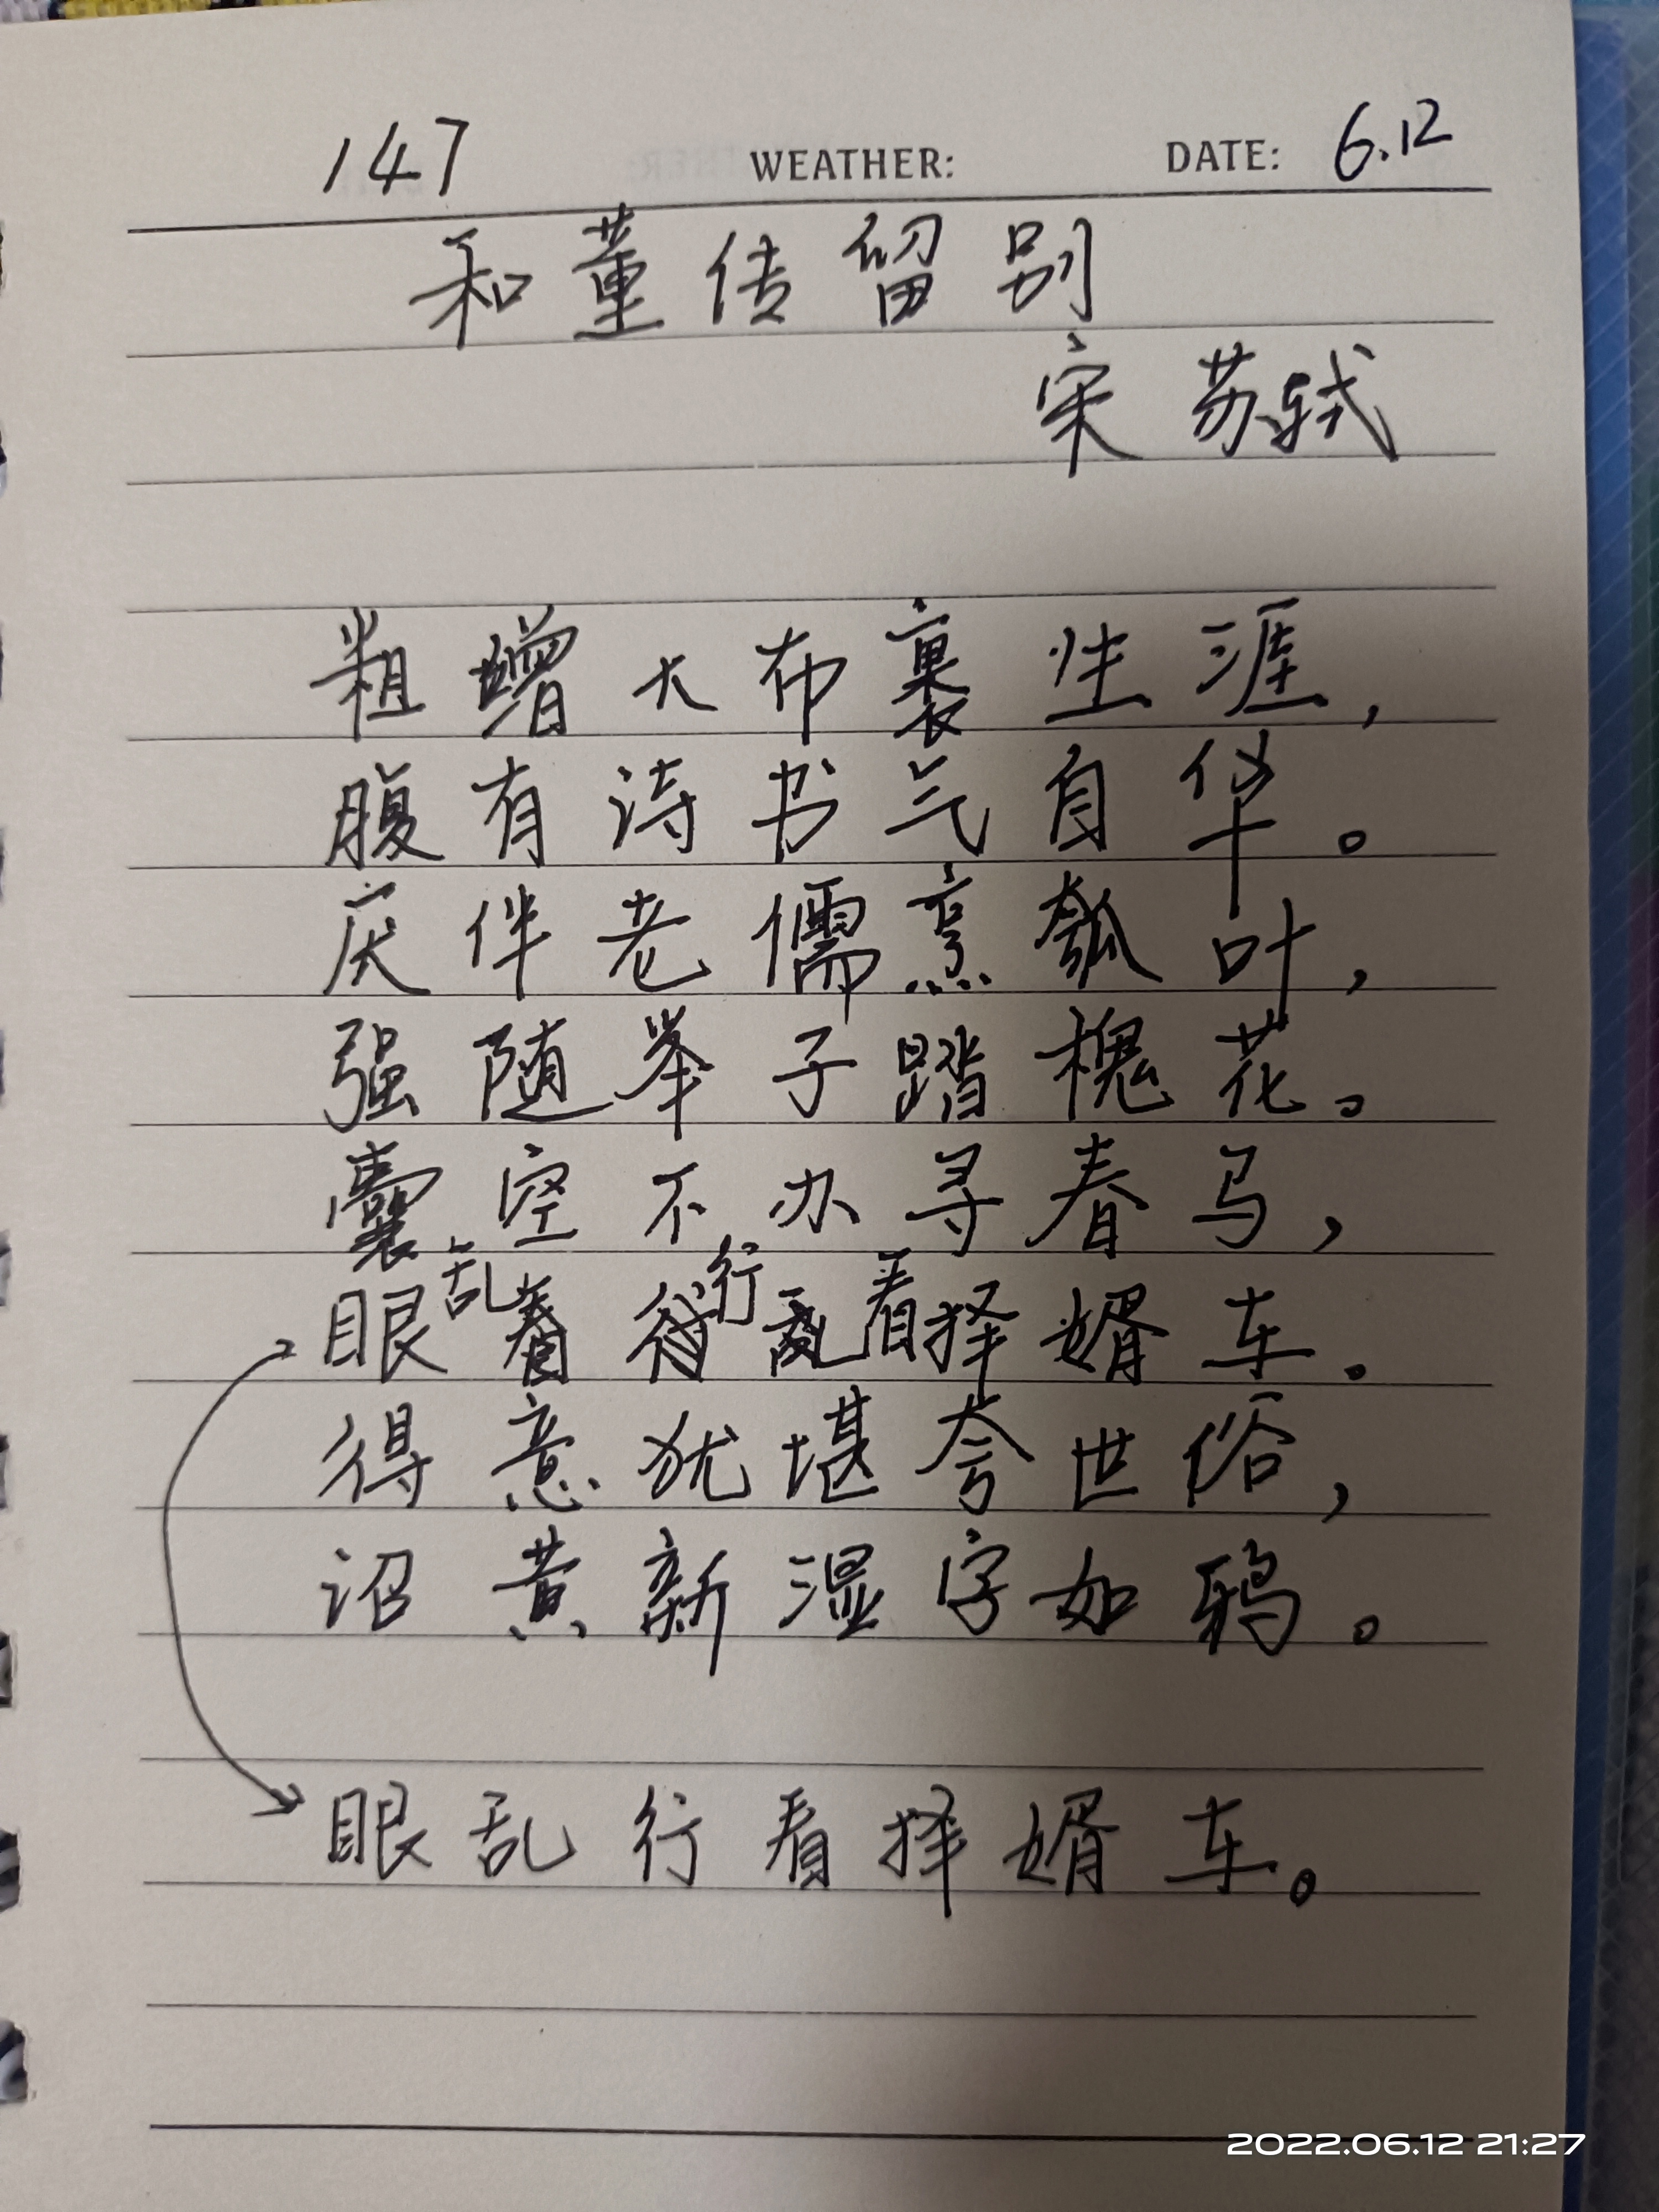 147 WEATHER: DATE: 6.12
和董传留别
宋 苏轼
粗缯大布裹生涯，
腹有诗书气自华。
厌伴老儒烹瓠叶，
强随举子踏槐花。
囊空不办寻春马，
眼乱行看择婿车。
得意犹堪夸世俗，
诏黄新湿字如鸦。
眼乱行看择婿车。
2022.06.12 21:27